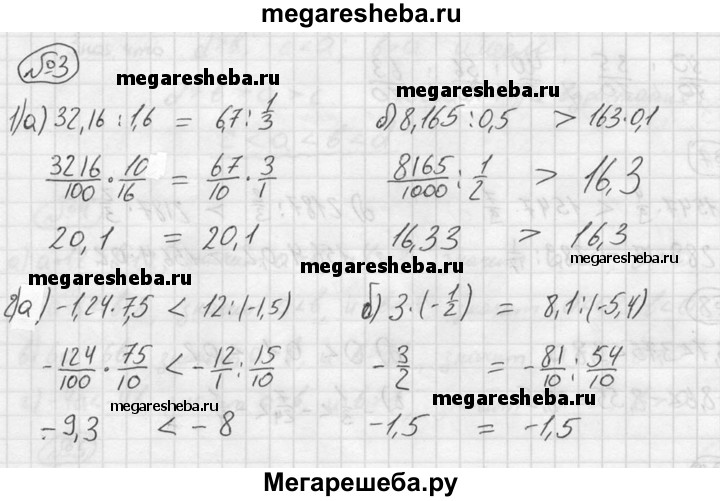 megaresheba.ru
№3
megaresheba.ru
megaresheba.ru
1) а) 32,16 : 1,6 = 6,7 : 1/3
б) 8,165 : 0,5 > 163·0,1
3216/100 · 10/16 = 67/10 · 3/1
8165/1000 : 1/2 > 16,3
20,1 = 20,1
16,33 > 16,3
megaresheba.ru
megaresheba.ru
megaresheba.ru
2) а) -1,24·7,5 < 12:(-1,5)
б) 3·(-1/2) = 8,1:(-5,4)
-124/100 · 75/10 < -12/1 : 15/10
-3/2 = -81/10 : 54/10
megaresheba.ru
megaresheba.ru
-9,3 < -8
-1,5 = -1,5
Мегарешеба.ру